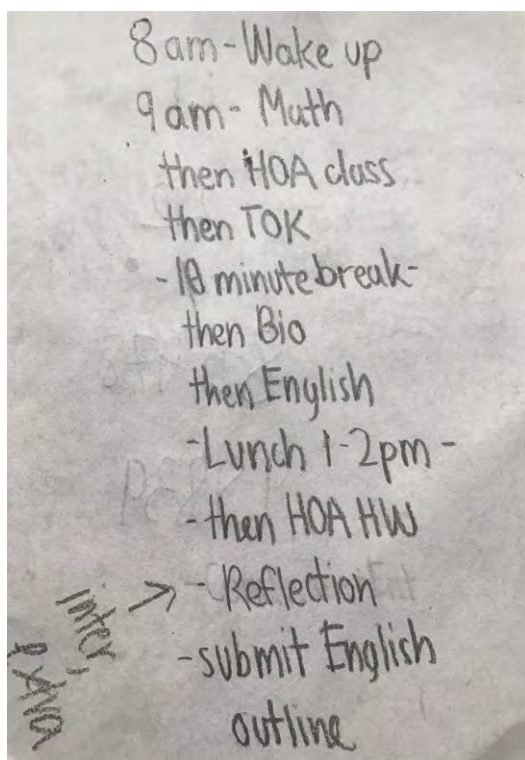 8am-Wake up
9am- Math
then HOA class
then TOK
-10 minute break-
then Bio
then English
-Lunch 1-2pm -
-then HOA HW
inter, → - Reflection
extra
-submit English
outline